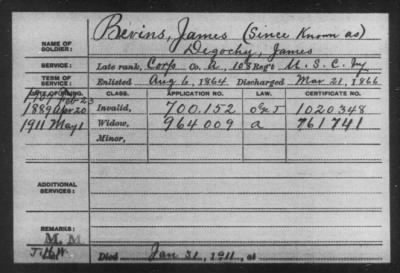 NAME OF SOLDIER: Bevins, James (Since Known as)
Degochy, James
SERVICE: Late rank, Corp Co. A, 108 Reg't U.S.C. Inf
TERM OF SERVICE: Enlisted Aug 6, 1864 Discharged Mar 21, 1866
DATE OF FILING. CLASS. APPLICATION NO. LAW. CERTIFICATE NO.
Feb 23
1889 Apr 20 Invalid, 700.152 1020348
1911 May 1 Widow, 964009 a 761741
Minor,
ADDITIONAL SERVICES:
REMARKS:
M. M.
Died Jan 31, 1911, at